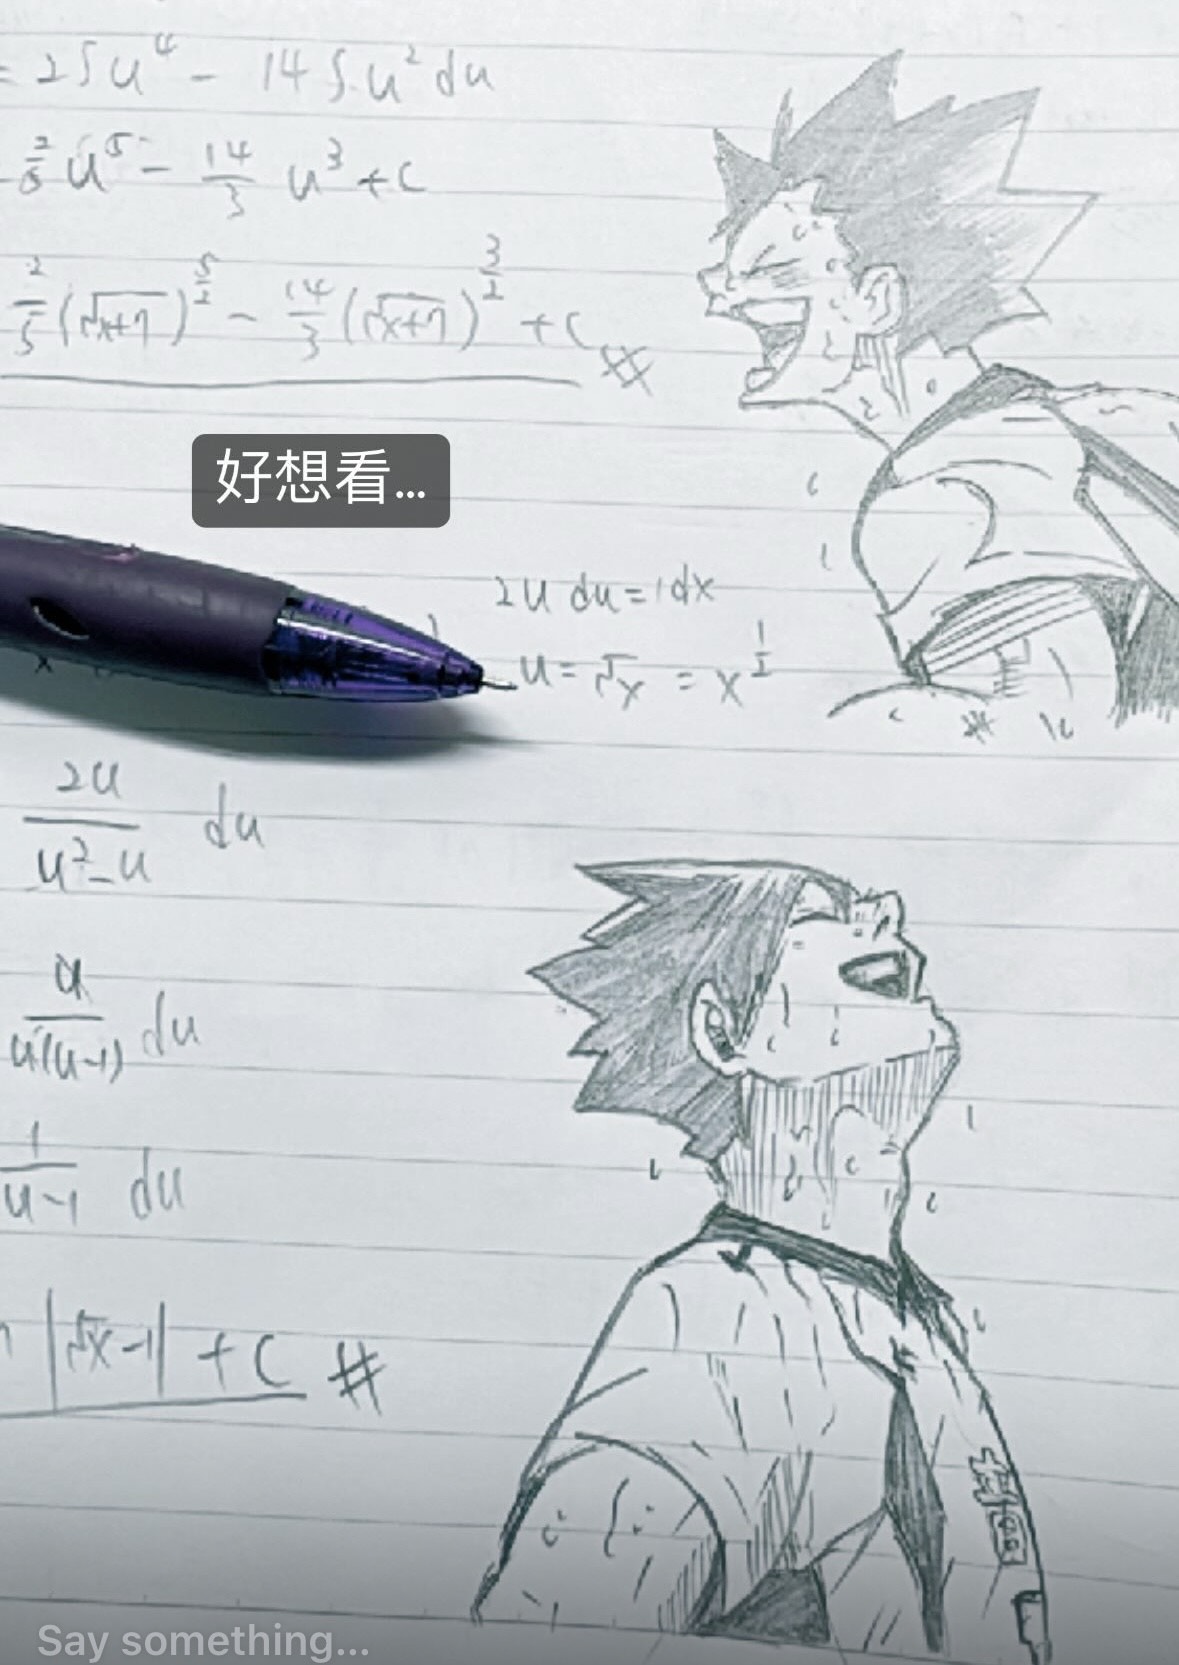 = 2∫u⁴ - 14∫u² du
2/5 u⁵ - 14/3 u³ + C
2/5 (√x+7)^5/2 - 14/3 (√x+7)^3/2 + C #
好想看...
2u du = 1dx
u = √x = x^1/2
2u/u²-u du
u/u(u-1) du
1/u-1 du
|√x-1| + C #
Say something...